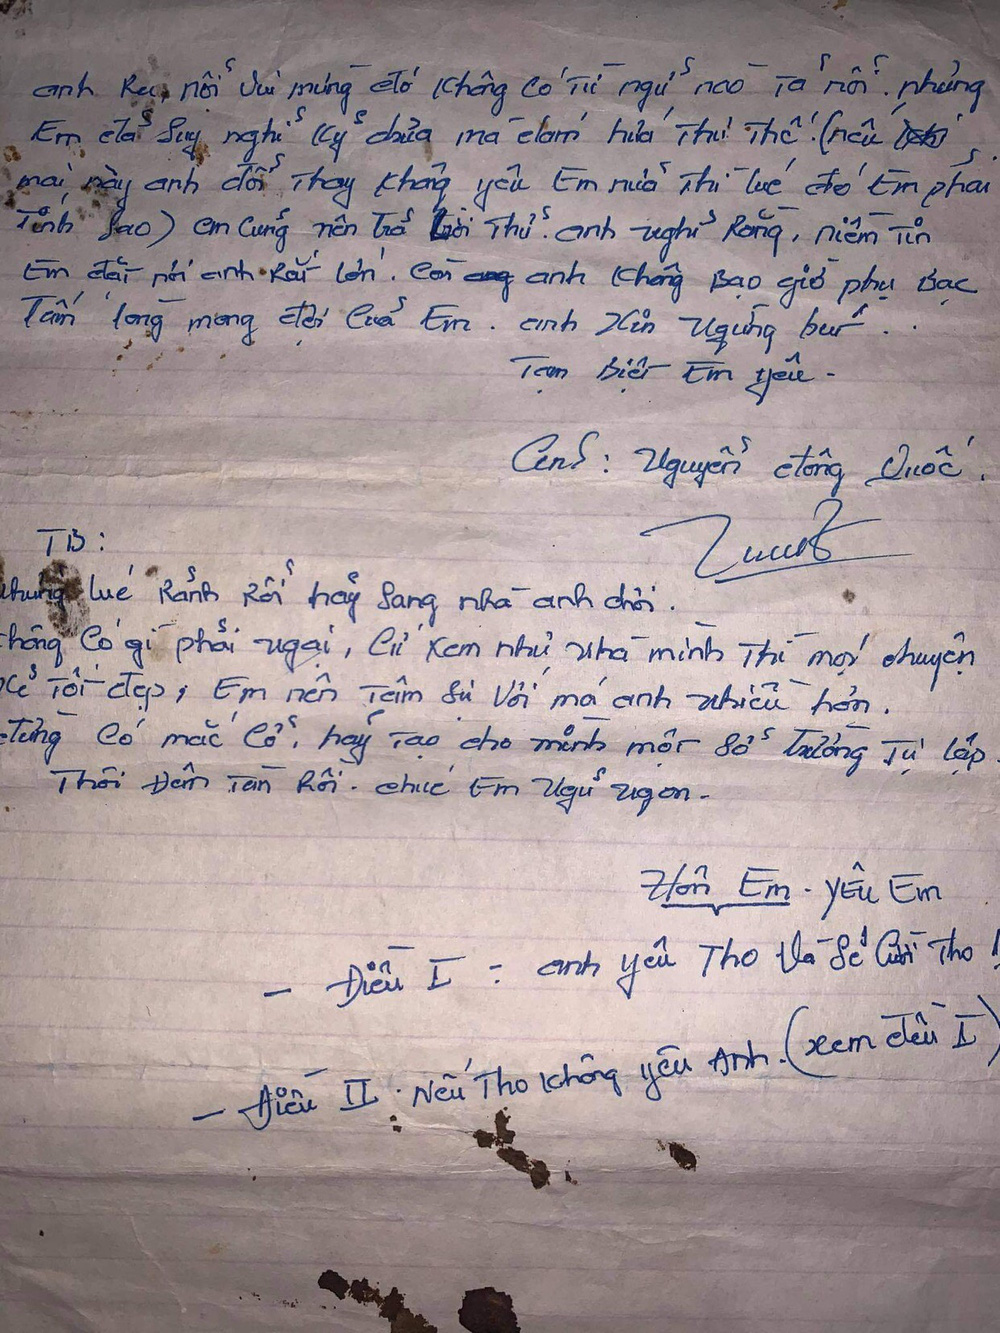 anh Ru, nỗi vui mừng đó không có từ ngữ nào tả nổi. nhưng
Em đã suy nghĩ kỹ chưa mà dám hứa như thế. (nếu
mai này anh đổi thay không yêu Em nữa thì lúc đó Em phải
tính sao) em cũng nên trả lời thử. anh nghĩ Rằng, niềm tin
Em đặt nơi anh Rất lớn. Còn anh không Bao giờ phụ Bạc
Tấm lòng mong đợi của Em. anh xin ngừng bút..
Tạm Biệt Em yêu -
Nguyễn đông Quốc.
TB:
những lúc Rảnh Rỗi hãy sang nhà anh chơi.
không có gì phải ngại, cứ xem như nhà mình thì mọi chuyện
sẽ tốt đẹp, Em nên tâm sự với má anh nhiều hơn.
đừng có mắc cở, hãy tạo cho mình một sở trường tự lập.
Thôi Đêm tàn Rồi. chúc Em ngủ ngon.
Hôn Em - yêu Em
- Điều I : anh yêu Tho và sẽ cưới Tho !
- Điều II. Nếu Tho không yêu Anh. (xem điều I)